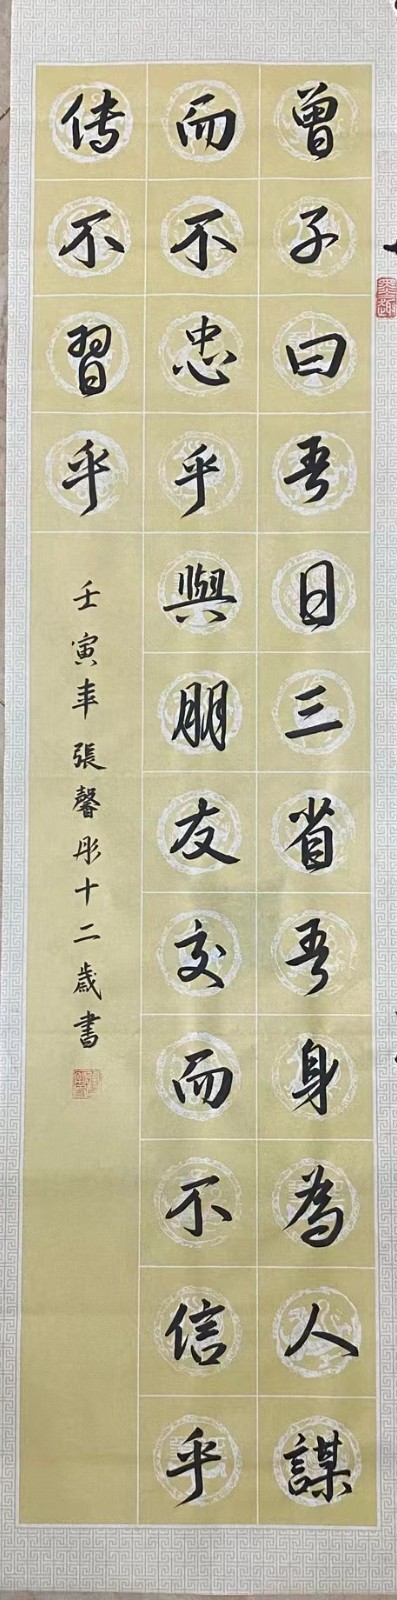 曾子曰吾日三省吾身為人謀
而不忠乎與朋友交而不信乎
传不習乎
壬寅年張馨彤十二歲書